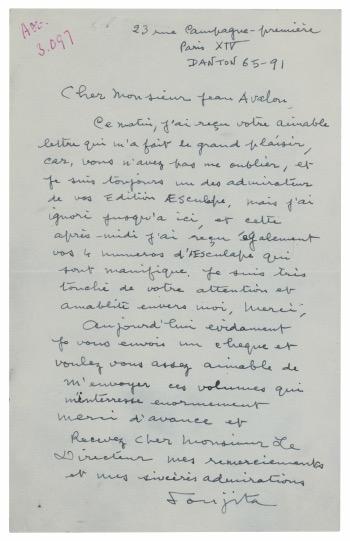 Acc.
3.097
23 rue Campagne-première
Paris XIV
DANTON 65-91
Cher Monsieur Jean Avalon,
Ce matin, j'ai reçu votre aimable
lettre qui m'a fait le grand plaisir,
car, vous n'avez pas me oublier, et
je suis toujours un des admirateur
de vos Edition Æsculape, mais j'ai
ignoré jusqu'a ici, et cette
après-midi j'ai reçu également
vos 4 numeros d'Æsculape qui
sont manifique. je suis très
touché de votre attention et
amablité envers moi, Merci,
Aujourd'hui evidament
je vous envois un cheque et
voulez vous assez aimable de
m'envoyer ces volumes qui
m'interresse enormement
merci d'avance et
Recevez Cher Monsieur Le
Directeur mes remerciements
et mes sincérès admirations
Foujita